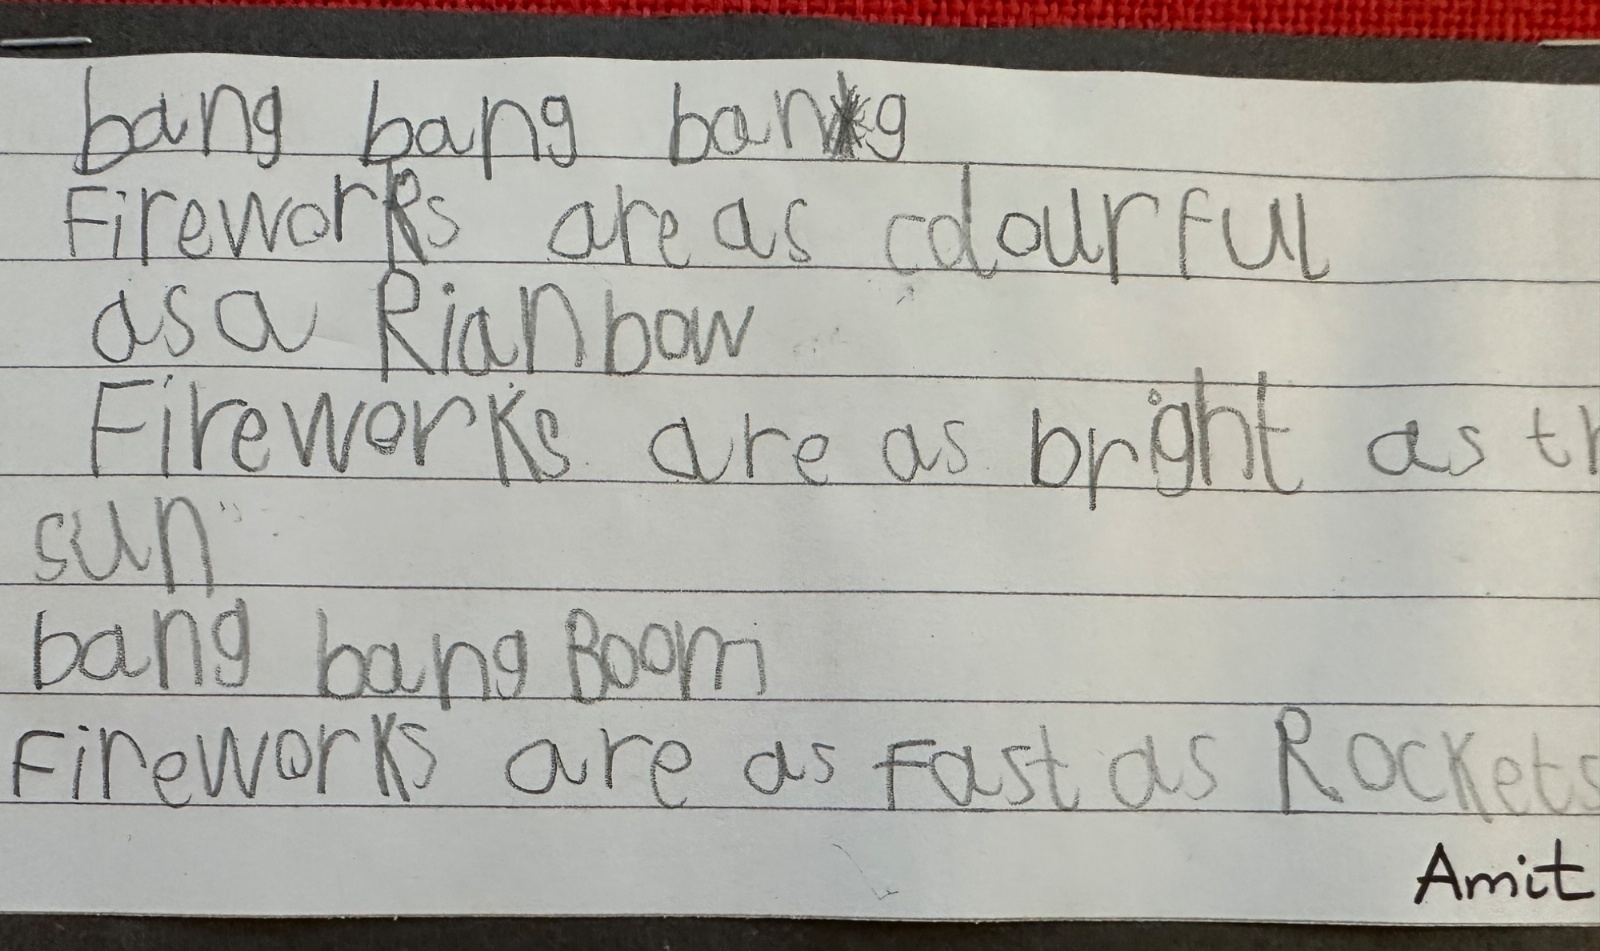 bang bang bang
Fireworks are as colourful
as a Rianbow
Fireworks are as bright as th
sun
bang bang Boom
Fireworks are as Fast as Rockets
Amit